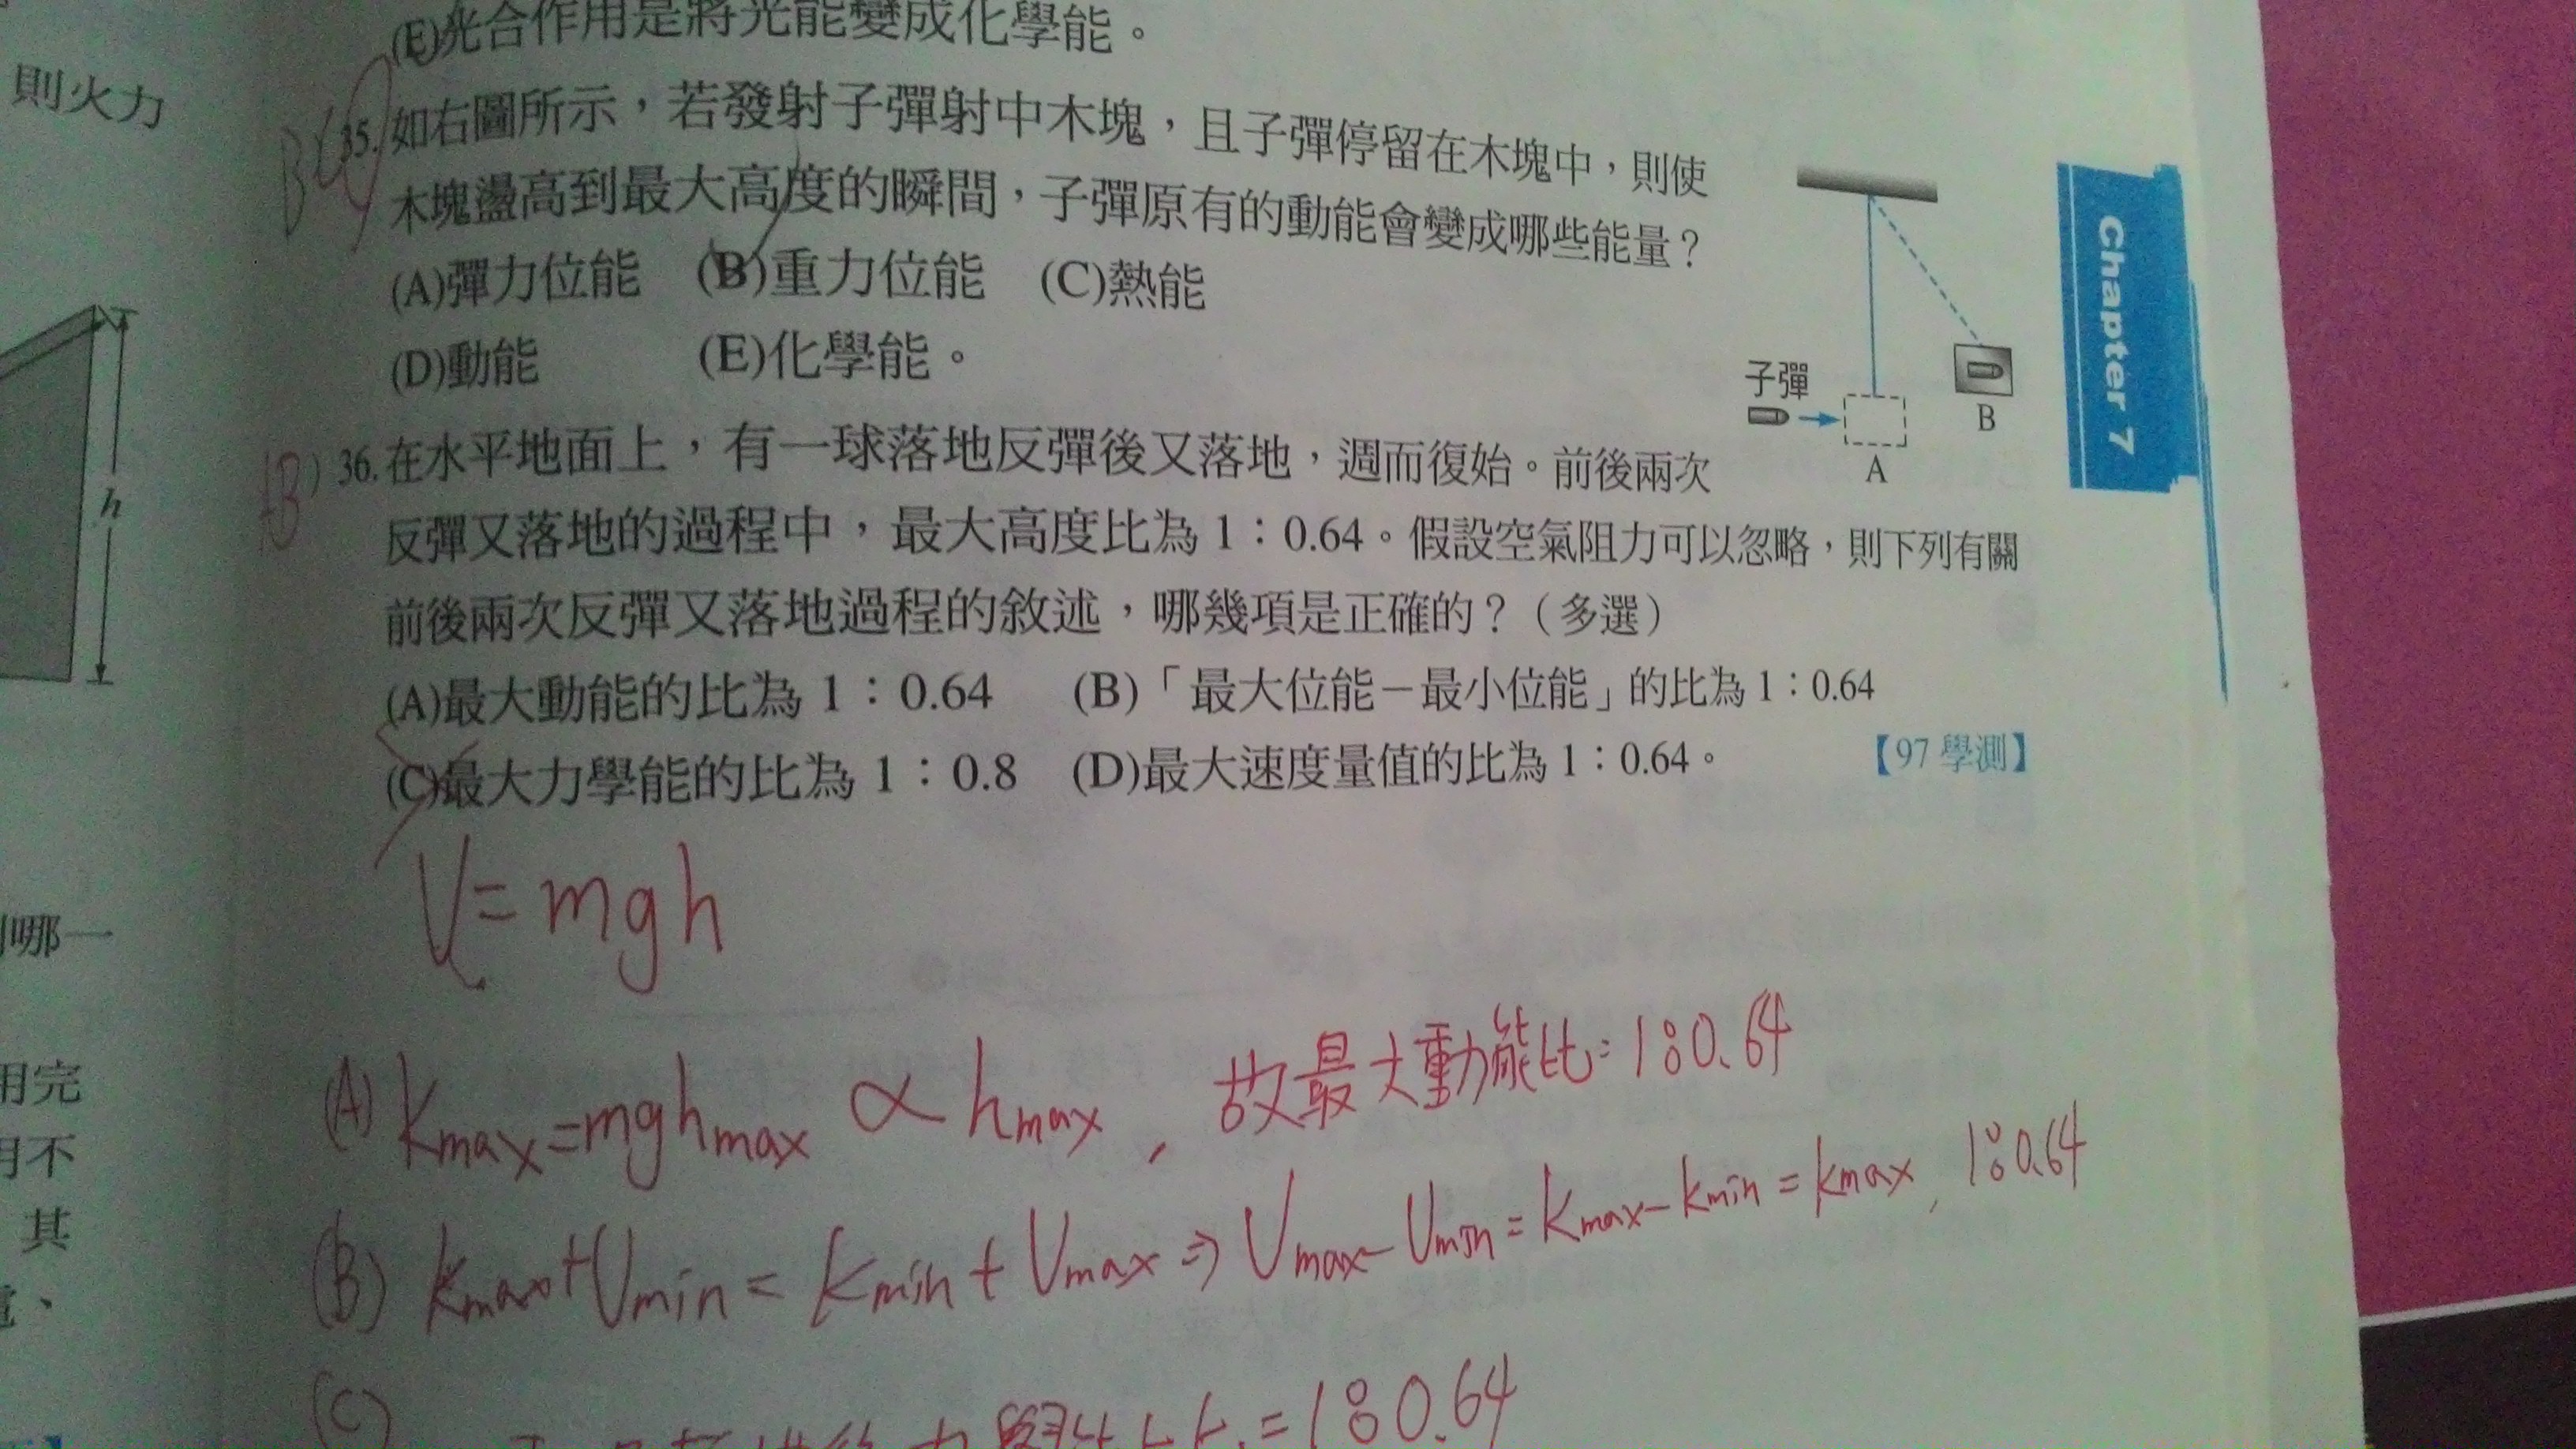 則火力
h
哪一
用完
其
(E)光合作用是將光能變成化學能。
35.如右圖所示，若發射子彈射中木塊，且子彈停留在木塊中，則使
木塊盪高到最大高度的瞬間，子彈原有的動能會變成哪些能量？
(A)彈力位能 (B)重力位能 (C)熱能
(D)動能 (E)化學能。
子彈
A
B
AB) 36.在水平地面上，有一球落地反彈後又落地，週而復始。前後兩次
反彈又落地的過程中，最大高度比為1：0.64。假設空氣阻力可以忽略，則下列有關
前後兩次反彈又落地過程的敘述，哪幾項是正確的？（多選）
(A)最大動能的比為1：0.64 (B)「最大位能－最小位能」的比為1：0.64
(C)最大力學能的比為1：0.8 (D)最大速度量值的比為1：0.64。 【97學測】
U=mgh
(A) Kmax=mghmax ∝ hmax, 故最大動能比=1:0.64
(B) Kmax+Umin=Kmin+Umax⇒Umax-Umin=Kmax-Kmin=Kmax, 1:0.64
(C)
=1:0.64
Chapter 7